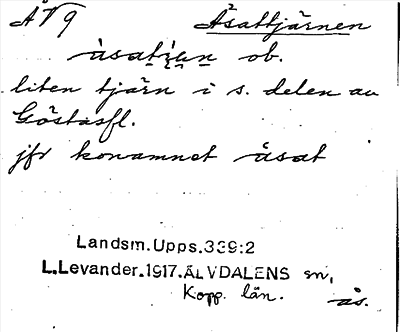 ÅV9 Åsattjärnen
åsatięn ob.
liten tjärn i s. delen av
Göstasfl.
jfr konamnet åsat
Landsm.Upps.339:2
L.Levander.1917.ÄLVDALENS sn,
Kopp. län.
ås.